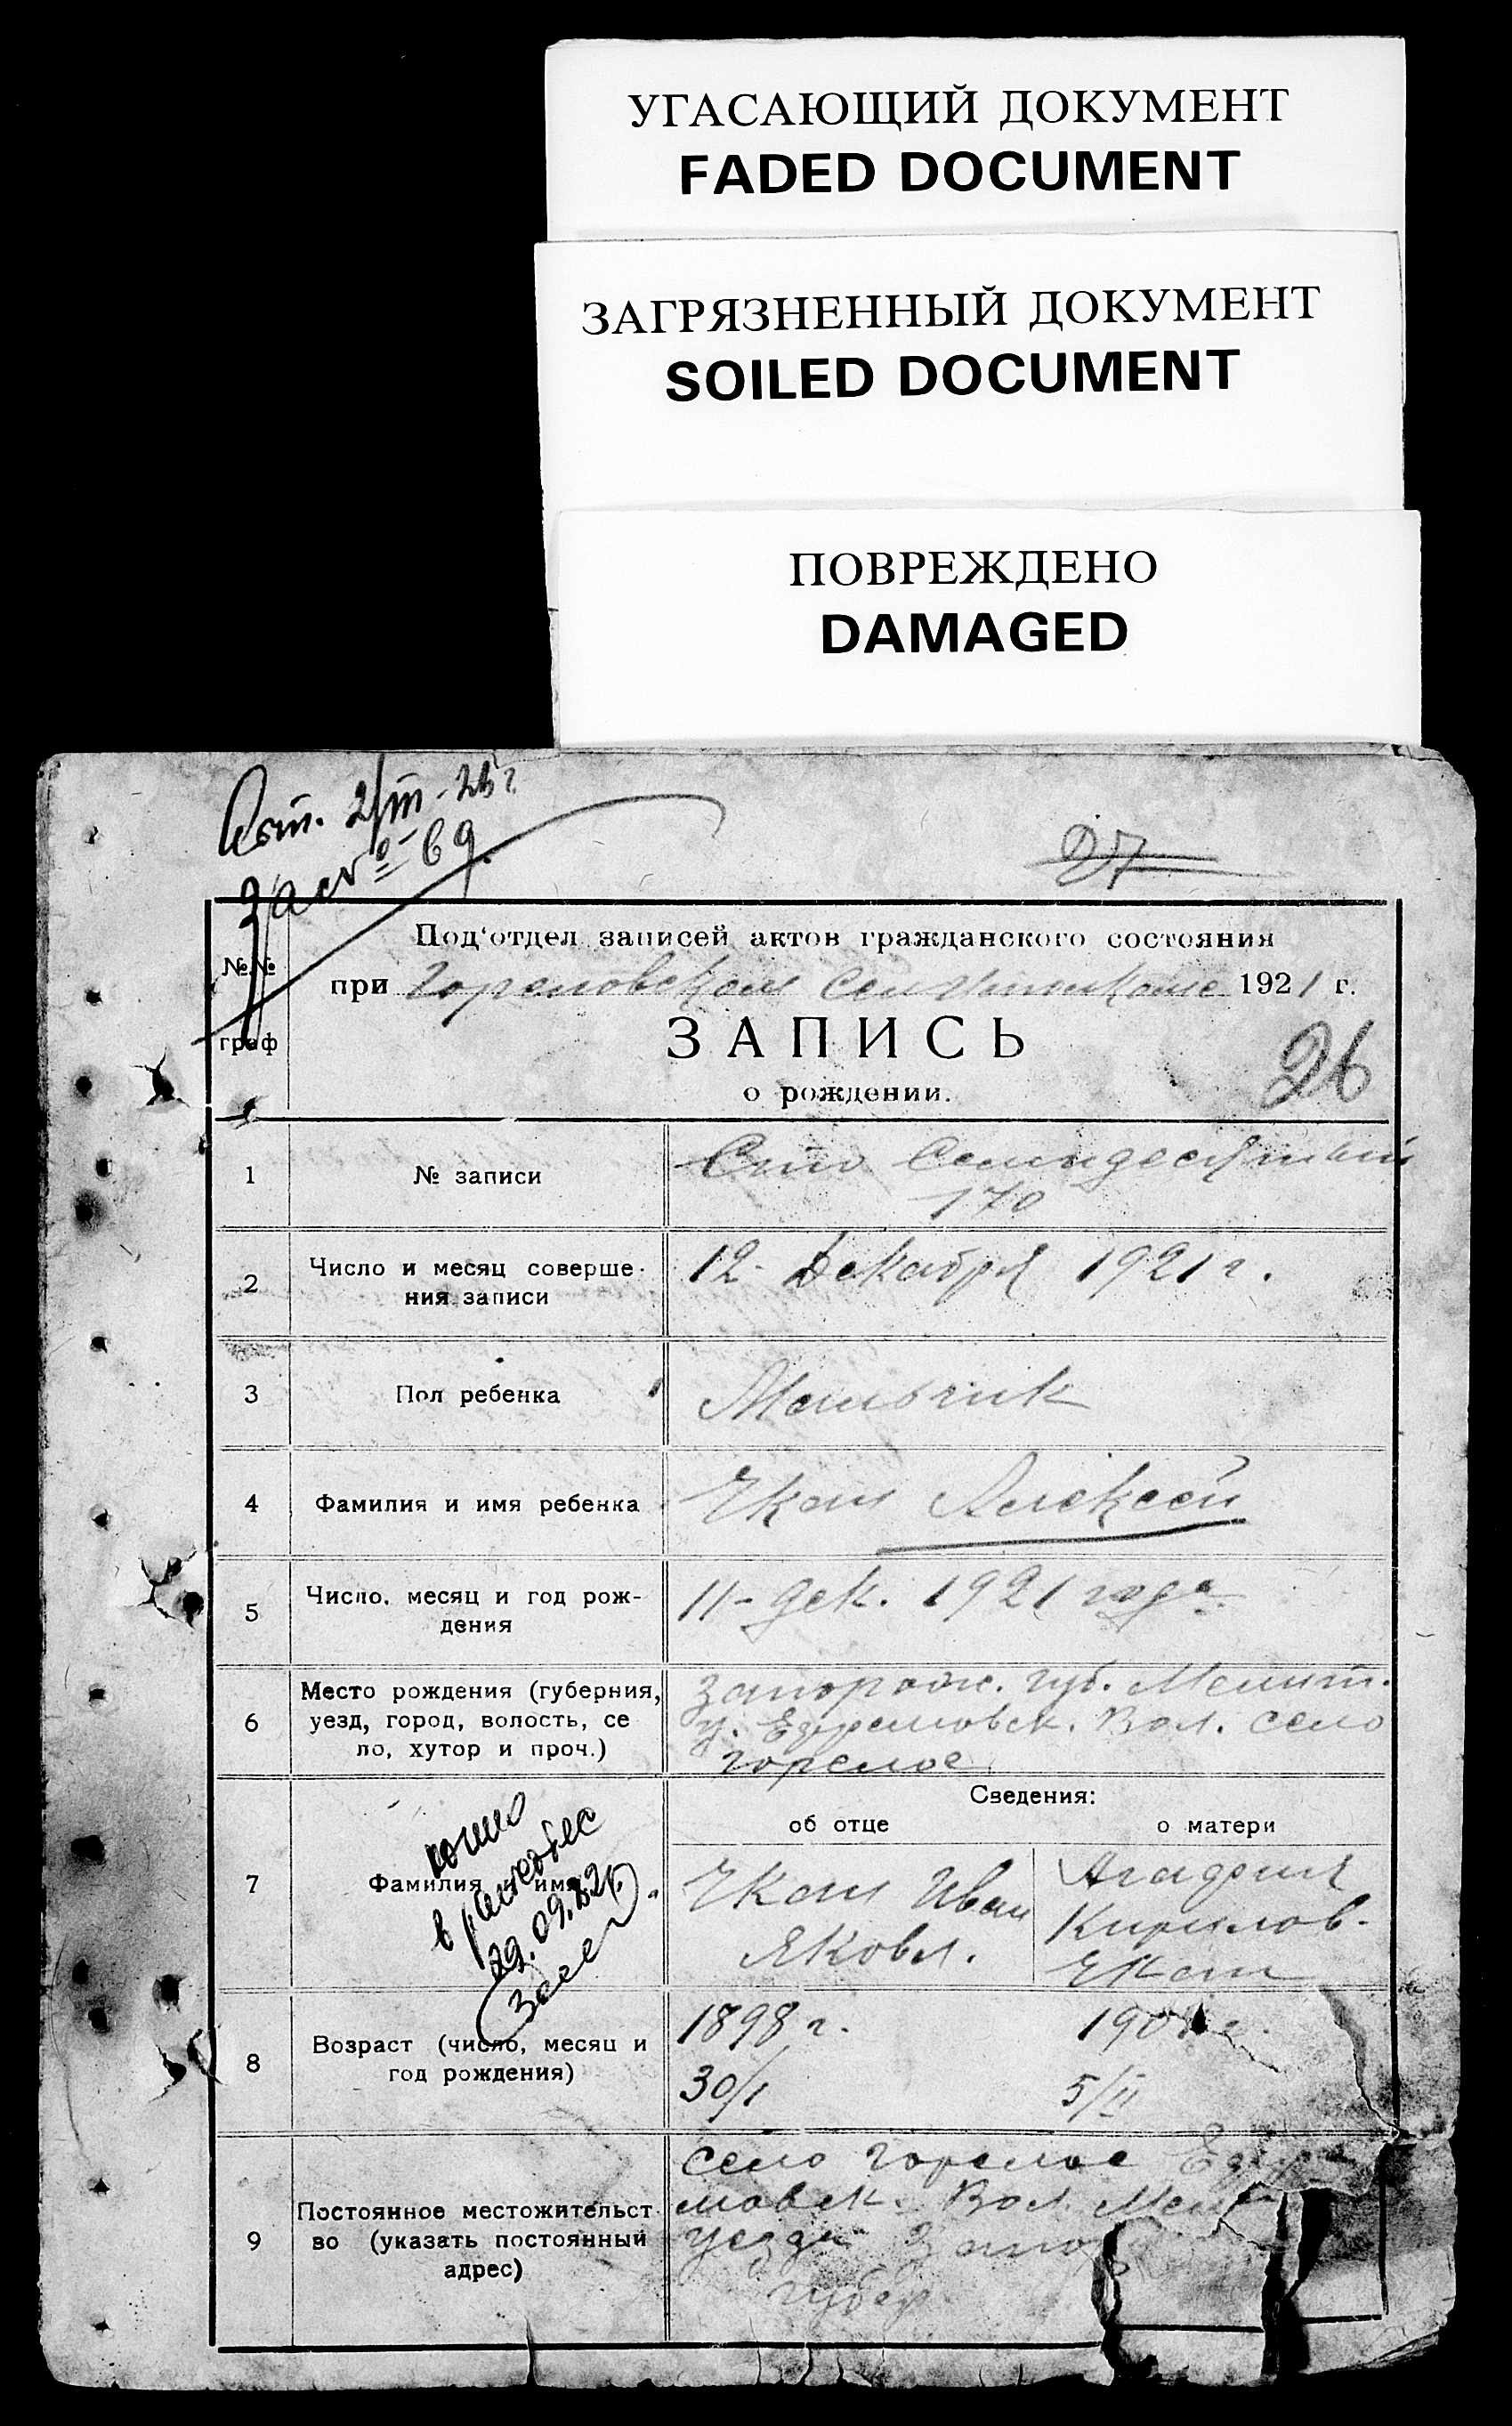 УГАСАЮЩИЙ ДОКУМЕНТ
FADED DOCUMENT
ЗАГРЯЗНЕННЫЙ ДОКУМЕНТ
SOILED DOCUMENT
ПОВРЕЖДЕНО
DAMAGED
27
за № 69.
Под'отдел записей актов гражданского состояния
№.№ граф
при Гореловском 1921 г.
ЗАПИСЬ
26
о рождении.
1 № записи Сто Семидесятый
170
2 Число и месяц соверше-
ния записи
12- Декабря 1921 г.
3 Пол ребенка Мальчик
4 Фамилия и имя ребенка Чкам Алексей
5 Число, месяц и год рож-
дения
11- дек. 1921 года
6 Место рождения (губерния,
уезд, город, волость, се
ло, хутор и проч.)
Запорож. губ. Мелит.
у. Ефремовск. Вол. село
горелое
Сведения:
об отце о матери
7 Фамилия и имя
Иван
Яковл.
Агафия
Кирилов.
29.09.
8 Возраст (число, месяц и
год рождения)
1898 г.
30/I
5/II
9 Постоянное местожительст
во (указать постоянный
адрес)
село горелое Ефре
мовск. Вол. Мел
уезда Запор
губер